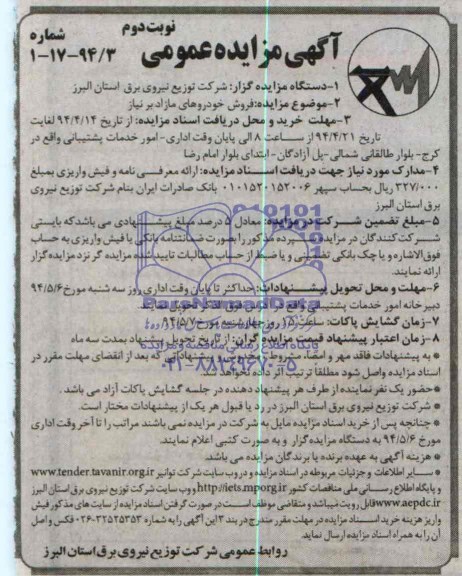 نوبت دوم
آگهی مزایده عمومی
شماره
۱-۱۷-۹۴/۳
۱-دستگاه مزایده گزار: شرکت توزیع نیروی برق استان البرز
۲-موضوع مزایده:فروش خودروهای مازاد بر نیاز
۳-مهلت خرید و محل دریافت اسناد مزایده: از تاریخ ۹۴/۴/۱۴ لغایت
تاریخ ۹۴/۴/۲۱ از ساعت ۸ الی پایان وقت اداری- امور خدمات پشتیبانی واقع در
کرج- بلوار طالقانی شمالی-پل آزادگان- ابتدای بلوار امام رضا
۴-مدارک مورد نیاز جهت دریافت اسناد مزایده: ارائه معرفی نامه و فیش واریزی بمبلغ
۳۲۷/۰۰۰ ریال بحساب سپهر ۰۱۰۱۵۲۰۱۵۲۰۰۶ بانک صادرات ایران بنام شرکت توزیع نیروی
برق استان البرز
۵-مبلغ تضمین شرکت در مزایده: معادل ۵ درصد مبلغ پیشنهادی می باشد که بایستی
شرکت کنندگان در مزایده سپرده مذکور را بصورت ضمانتنامه بانکی یا فیش واریزی به حساب
فوق الاشاره و یا چک بانکی تضمینی و یا ضبط از حساب مطالبات تایید شده مزایده گر نزد مزایده گزار
ارائه نمایند.
۶-مهلت و محل تحویل پیشنهادات: حداکثر تا پایان وقت اداری روز سه شنبه مورخ ۹۴/۵/۶
دبیرخانه امور خدمات پشتیبانی واقع در آدرس فوق الذکر تحویل نمایند.
۷-زمان گشایش پاکات: ساعت روز چهارشنبه مورخ ۹۴/۵/۷
۸-زمان اعتبار پیشنهاد قیمت مزایده گران: از تاریخ تحویل پیشنهاد بمدت سه ماه
* به پیشنهادات فاقد مهر و امضاء، مشروط، مخدوش و پیشنهاداتی که بعد از انقضای مهلت مقرر در
اسناد مزایده واصل شود مطلقا ترتیب اثر داده نخواهد شد.
*حضور یک نفر نماینده از طرف هر پیشنهاد دهنده در جلسه گشایش پاکات آزاد می باشد.
* شرکت توزیع نیروی برق استان البرز در رد یا قبول هر یک از پیشنهادات مختار است.
* چنانچه پس از خرید اسناد مزایده مایل به شرکت در مزایده نمی باشند مراتب را تا آخر وقت اداری
مورخ ۹۴/۵/۶ به دستگاه مزایده گزار و به صورت کتبی اعلام نمایند.
* هزینه آگهی به عهده برنده یا برندگان مزایده می باشد.
* سایر اطلاعات و جزئیات مربوطه در اسناد مزایده و در وب سایت شرکت توانیر www.tender.tavanir.org.ir
و پایگاه اطلاع رسانی ملی مناقصات کشور http://iets.mporg.ir و وب سایت شرکت توزیع نیروی برق استان البرز
www.aepdc.ir قابل رویت میباشد و متقاضی موظف است در صورت گرفتن اسناد مزایده از سایت های مذکور فیش
واریز هزینه خرید اسناد مزایده در مهلت مقرر مندرج در بند ۳ این آگهی را به شماره ۳۲۵۲۵۳۵۳-۰۲۶ فکس و اصل
آن را به همراه اسناد مزایده ارسال نماید.
روابط عمومی شرکت توزیع نیروی برق استان البرز
ParsNamadData
پایگاه اطلاع رسانی مناقصه و مزایده
۰۲۱-۸۸۳۴۹۶۷۰-۵